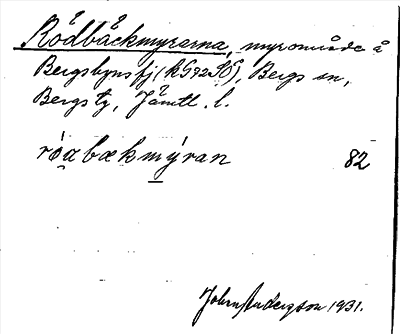 Rödbäckmyrarna, myrområde å
Bergsbyns fj (kG92SÖ), Bergs sn,
Bergs tg, Jämtl. l.
róabækmýran 82
John Anderzon 1931.